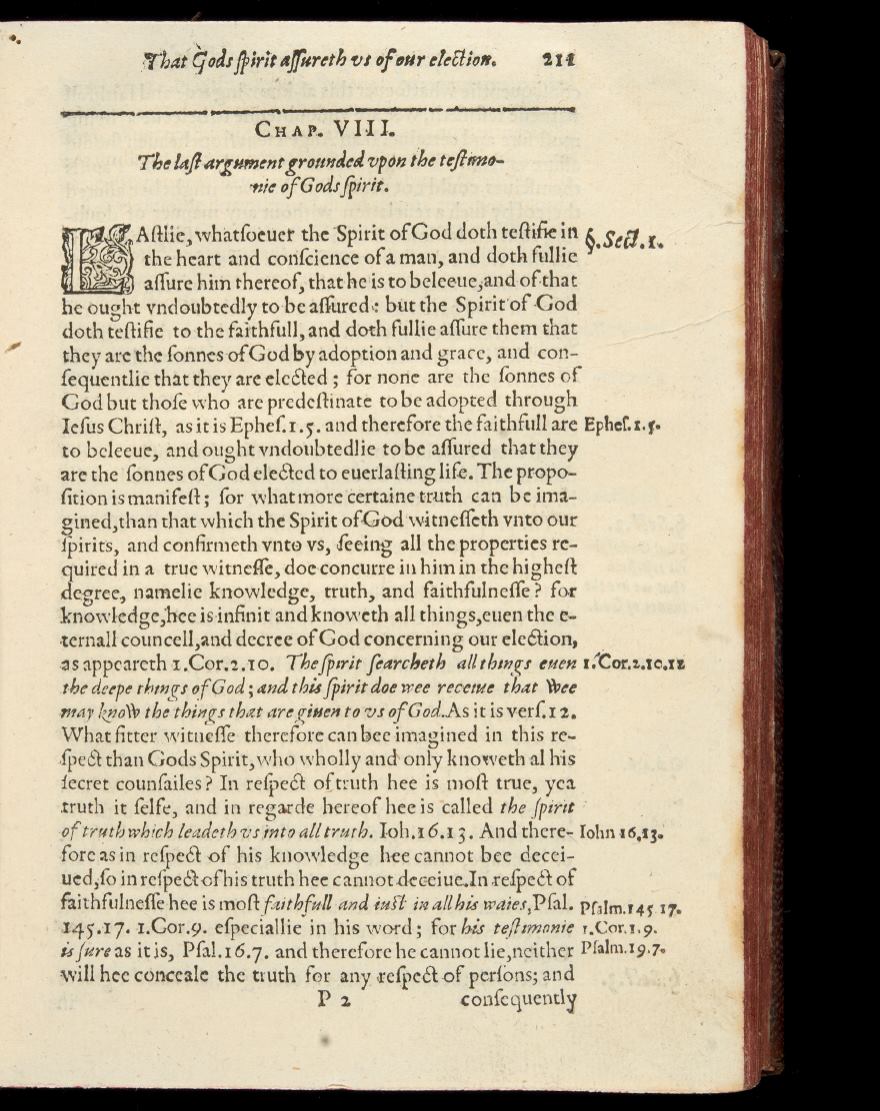 That Gods ſpirit aſſureth vs of our election. 211
CHAP. VIII.
The laſt argument grounded vpon the teſtimo-
nie of Gods ſpirit.
LAſtlie, whatſoeuer the Spirit of God doth teſtifie in
§. Sect. 1.
the heart and conſcience of a man, and doth fullie
aſſure him thereof, that he is to beleeue, and of that
he ought vndoubtedly to be aſſured: but the Spirit of God
doth teſtifie to the faithfull, and doth fullie aſſure them that
they are the ſonnes of God by adoption and grace, and con-
ſequentlie that they are elected; for none are the ſonnes of
God but thoſe who are predeſtinate to be adopted through
Ieſus Chriſt, as it is Epheſ. 1.5. and therefore the faithfull are
Epheſ. 1.5.
to beleeue, and ought vndoubtedlie to be aſſured that they
are the ſonnes of God elected to euerlaſting life. The propo-
ſition is manifeſt; for what more certaine truth can be ima-
gined, than that which the Spirit of God witneſſeth vnto our
ſpirits, and confirmeth vnto vs, ſeeing all the properties re-
quired in a true witneſſe, doe concurre in him in the higheſt
degree, namelie knowledge, truth, and faithfulneſſe? for
knowledge, hee is infinit and knoweth all things, euen the e-
ternall councell, and decree of God concerning our election,
as appeareth 1.Cor.2.10. The ſpirit ſearcheth all things euen
1.Cor.2.10.12
the deepe things of God; and this ſpirit doe wee receiue that wee
may know the things that are giuen to vs of God. As it is verſ. 12.
What fitter witneſſe therefore can bee imagined in this re-
ſpect than Gods Spirit, who wholly and only knoweth al his
ſecret counſailes? In reſpect of truth hee is moſt true, yea
truth it ſelfe, and in regarde hereof hee is called the ſpirit
of truth which leadeth vs into all truth. Ioh. 16.13. And there-
Iohn 16.13.
fore as in reſpect of his knowledge hee cannot bee decei-
ued, ſo in reſpect of his truth hee cannot deceiue. In reſpect of
faithfulneſſe hee is moſt faithfull and iuſt in all his waies, Pſal.
Pſalm. 145 17.
145.17. 1.Cor.9. eſpeciallie in his word; for his teſtimonie
1.Cor.1.9.
is ſure as it is, Pſal.16.7. and therefore he cannot lie, neither
Pſalm. 19.7.
will hee conceale the truth for any reſpect of perſons; and
P 2 conſequently